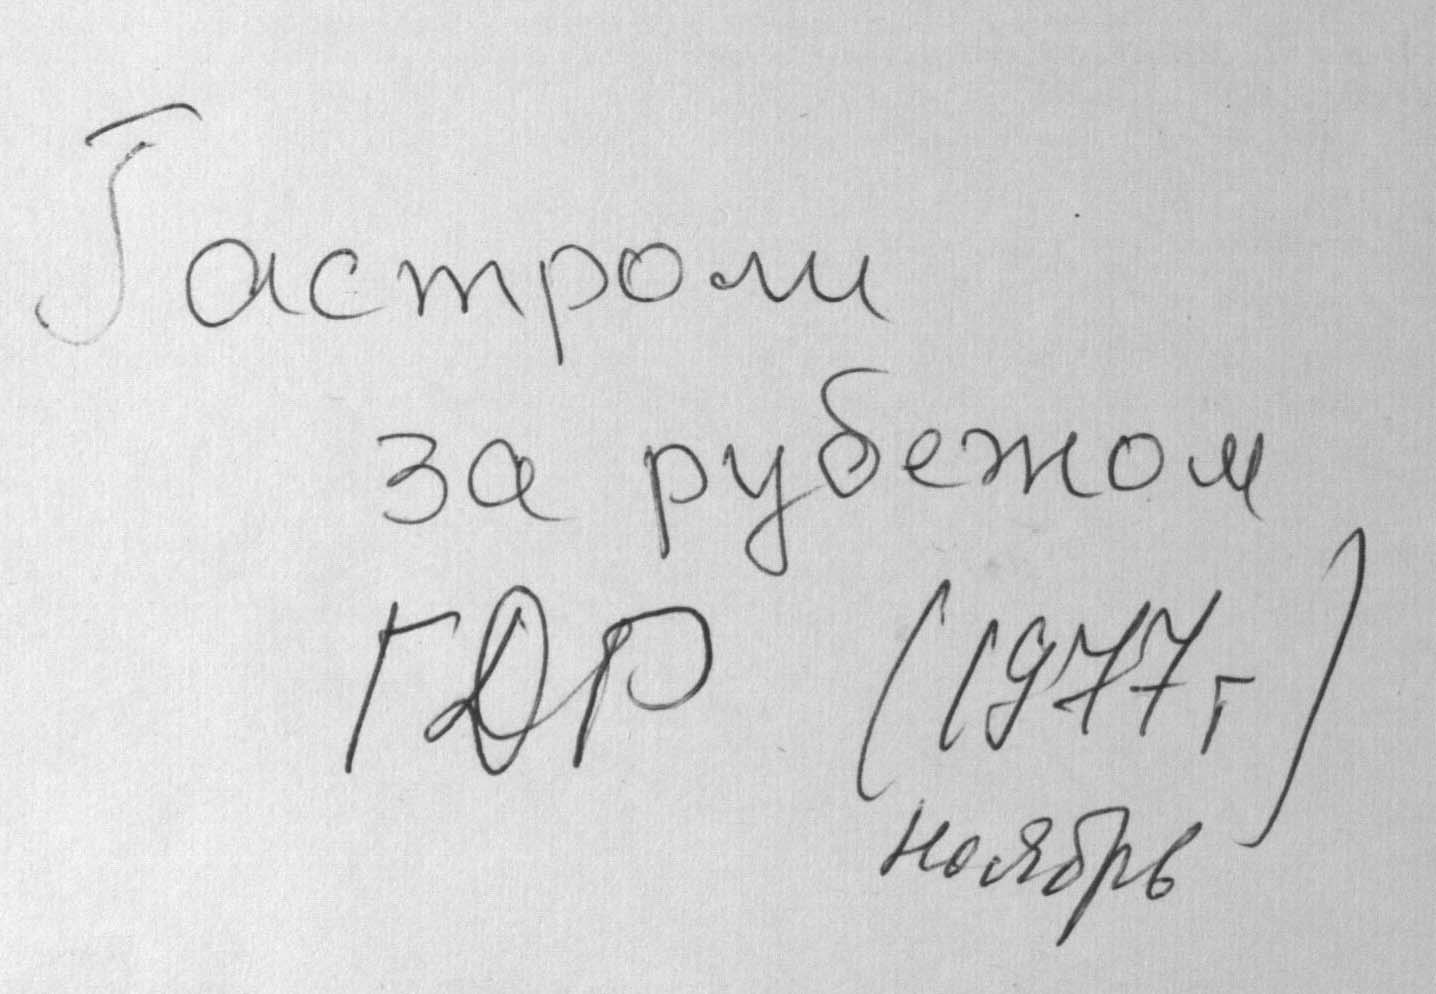 Гастроли
за рубежом
ГДР (1977г)
ноябрь